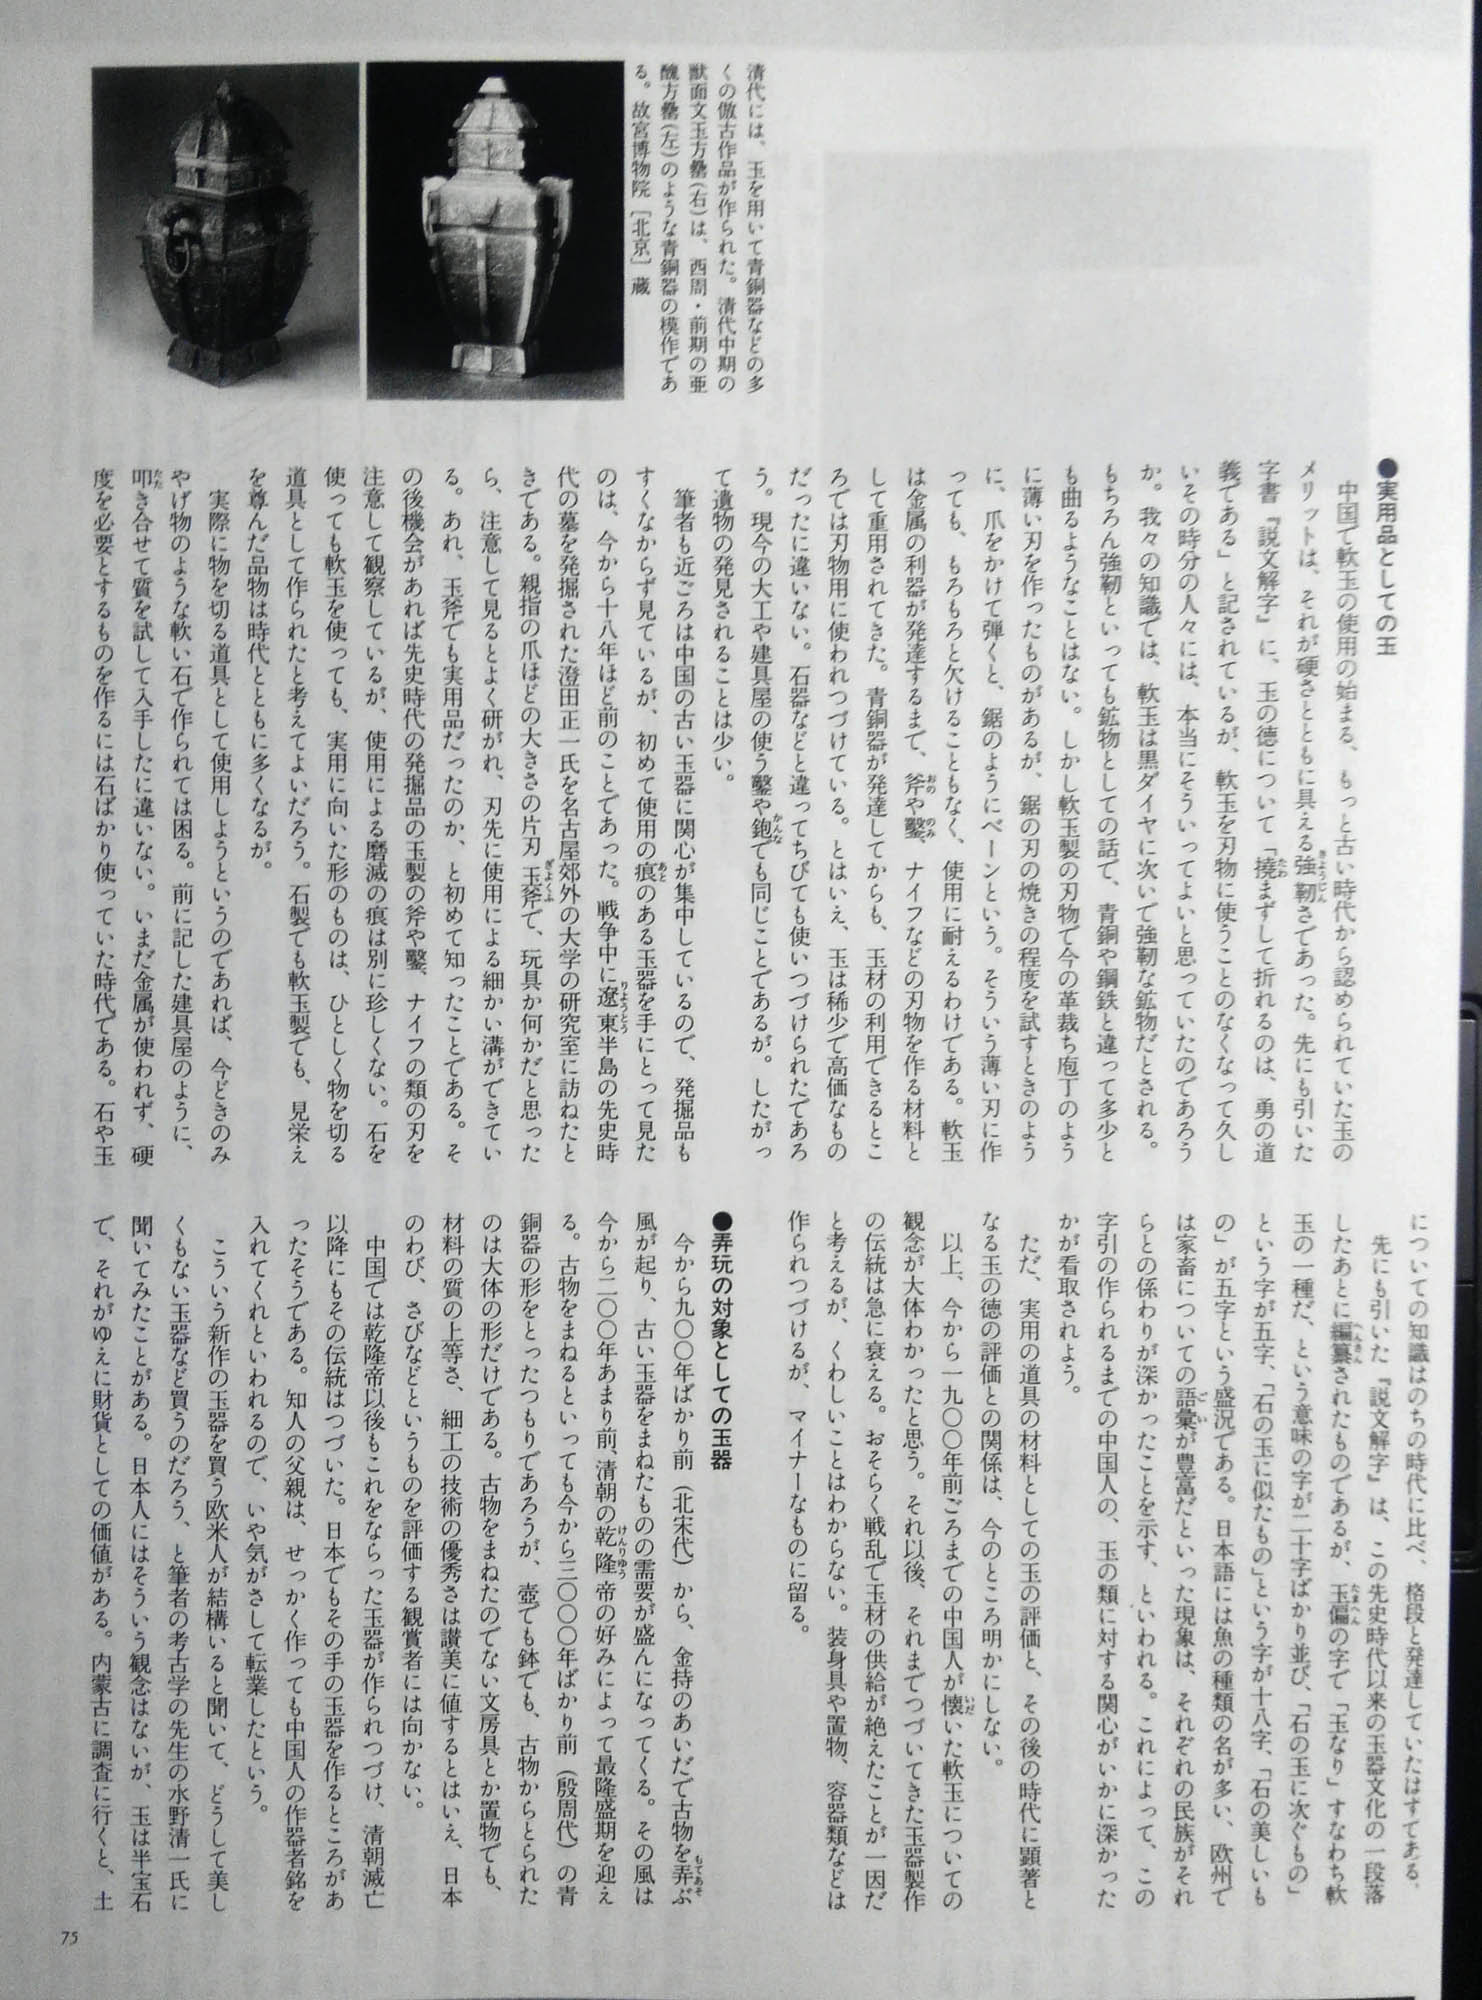 清代には、玉を用いて青銅器などの多
くの倣古作品が作られた。清代中期の
獣面文玉方罍(右)は、西周・前期の亜
醜方罍(左)のような青銅器の模作であ
る。故宮博物院［北京］蔵
●実用品としての玉
中国で軟玉の使用の始まる、もっと古い時代から認められていた玉の
メリットは、それが硬さとともに具える強靭さであった。先にも引いた
字書『説文解字』に、玉の徳について「撓まずして折れるのは、勇の道
義である」と記されているが、軟玉を刃物に使うことのなくなって久し
いその時分の人々には、本当にそういってよいと思っていたのであろう
か。我々の知識では、軟玉は黒ダイヤに次いで強靭な鉱物だとされる。
もちろん強靭といっても鉱物としての話で、青銅や鋼鉄と違って多少と
も曲るようなことはない。しかし軟玉製の刃物で今の革裁ち庖丁のよう
に薄い刃を作ったものがあるが、鋸の刃の焼きの程度を試すときのよう
に、爪をかけて弾くと、鋸のようにベーンという。そういう薄い刃に作
っても、もろもろと欠けることもなく、使用に耐えるわけである。軟玉
は金属の利器が発達するまで、斧や鑿、ナイフなどの刃物を作る材料と
して重用されてきた。青銅器が発達してからも、玉材の利用できるとこ
ろでは刃物用に使われつづけている。とはいえ、玉は稀少で高価なもの
だったに違いない。石器などと違ってちびても使いつづけられたであろ
う。現今の大工や建具屋の使う鑿や鉋でも同じことであるが。したがっ
て遺物の発見されることは少い。
筆者も近ごろは中国の古い玉器に関心が集中しているので、発掘品も
すくなからず見ているが、初めて使用の痕のある玉器を手にとって見た
のは、今から十八年ほど前のことであった。戦争中に遼東半島の先史時
代の墓を発掘された澄田正一氏を名古屋郊外の大学の研究室に訪ねたと
きである。親指の爪ほどの大きさの片刃玉斧で、玩具か何かだと思った
ら、注意して見るとよく研がれ、刃先に使用による細かい溝ができてい
る。あれ、玉斧でも実用品だったのか、と初めて知ったことである。そ
の後機会があれば先史時代の発掘品の玉製の斧や鑿、ナイフの類の刃を
注意して観察しているが、使用による磨滅の痕は別に珍しくない。石を
使っても軟玉を使っても、実用に向いた形のものは、ひとしく物を切る
道具として作られたと考えてよいだろう。石製でも軟玉製でも、見栄え
を尊んだ品物は時代とともに多くなるが。
実際に物を切る道具として使用しようというのであれば、今どきのみ
やげ物のような軟い石で作られては困る。前に記した建具屋のように、
叩き合せて質を試して入手したに違いない。いまだ金属が使われず、硬
度を必要とするものを作るには石ばかり使っていた時代である。石や玉
についての知識はのちの時代に比べ、格段と発達していたはずである。
先にも引いた『説文解字』は、この先史時代以来の玉器文化の一段落
したあとに編纂されたものであるが、玉偏の字で「玉なり」すなわち軟
玉の一種だ、という意味の字が二十字ばかり並び、「石の玉に次ぐもの」
という字が五字、「石の玉に似たもの」という字が十八字、「石の美しいも
の」が五字という盛況である。日本語には魚の種類の名が多い、欧州で
は家畜についての語彙が豊富だといった現象は、それぞれの民族がそれ
らとの係わりが深かったことを示す、といわれる。これによって、この
字引の作られるまでの中国人の、玉の類に対する関心がいかに深かった
かが看取されよう。
ただ、実用の道具の材料としての玉の評価と、その後の時代に顕著と
なる玉の徳の評価との関係は、今のところ明かにしない。
以上、今から一九〇〇年前ごろまでの中国人が懐いた軟玉についての
観念が大体わかったと思う。それ以後、それまでつづいてきた玉器製作
の伝統は急に衰える。おそらく戦乱で玉材の供給が絶えたことが一因だ
と考えるが、くわしいことはわからない。装身具や置物、容器類などは
作られつづけるが、マイナーなものに留る。
●弄玩の対象としての玉器
今から九〇〇年ばかり前（北宋代）から、金持のあいだで古物を弄ぶ
風が起り、古い玉器をまねたものの需要が盛んになってくる。その風は
今から二〇〇年あまり前、清朝の乾隆帝の好みによって最隆盛期を迎え
る。古物をまねるといっても今から三〇〇〇年ばかり前（殷周代）の青
銅器の形をとったつもりであろうが、壺でも鉢でも、古物からとられた
のは大体の形だけである。古物をまねたのでない文房具とか置物でも、
材料の質の上等さ、細工の技術の優秀さは讃美に値するとはいえ、日本
のわび、さびなどというものを評価する観賞者には向かない。
中国では乾隆帝以後もこれをならった玉器が作られつづけ、清朝滅亡
以降にもその伝統はつづいた。日本でもその手の玉器を作るところがあ
ったそうである。知人の父親は、せっかく作っても中国人の作器者銘を
入れてくれといわれるので、いや気がさして転業したという。
こういう新作の玉器を買う欧米人が結構いると聞いて、どうして美し
くもない玉器など買うのだろう、と筆者の考古学の先生の水野清一氏に
聞いてみたことがある。日本人にはそういう観念はないが、玉は半宝石
で、それがゆえに財貨としての価値がある。内蒙古に調査に行くと、土
75